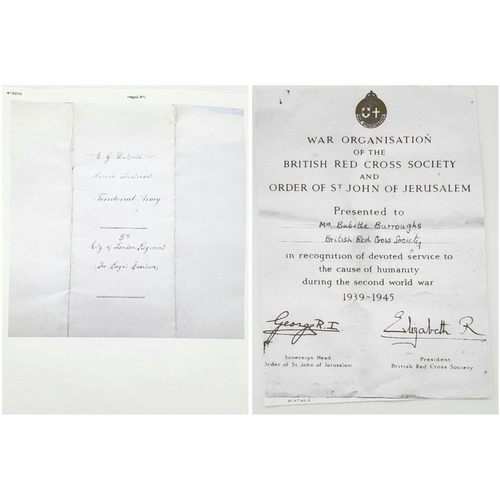 Second Lieutenant
Territorial Army
City of London Regiment
(The Royal Fusiliers)
WAR ORGANISATION
OF THE
BRITISH RED CROSS SOCIETY
AND
ORDER OF ST JOHN OF JERUSALEM
Presented to
Mrs Babette Burroughs
British Red Cross Society
in recognition of devoted service to
the cause of humanity
during the second world war
1939-1945
George R.I.
Elizabeth R
Sovereign Head
Order of St John of Jerusalem
President
British Red Cross Society